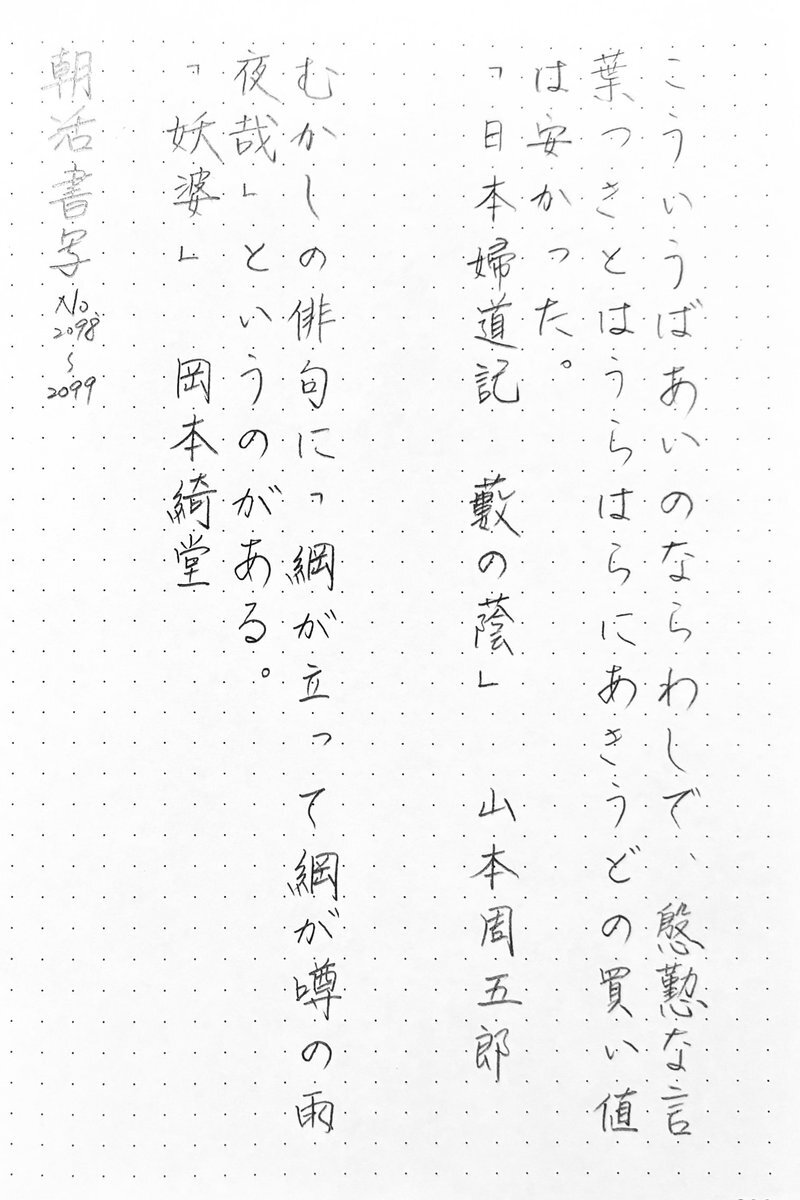 こういうばあいのならわしで、慇懃な言
葉つきとはうらはらにあきうどの買い値
は安かった。
「日本婦道記　藪の蔭」　山本周五郎
むかしの俳句に「綱が立って綱が噂の雨
夜哉」というのがある。
「妖婆」　岡本綺堂
朝活書写 No 2098〜2099